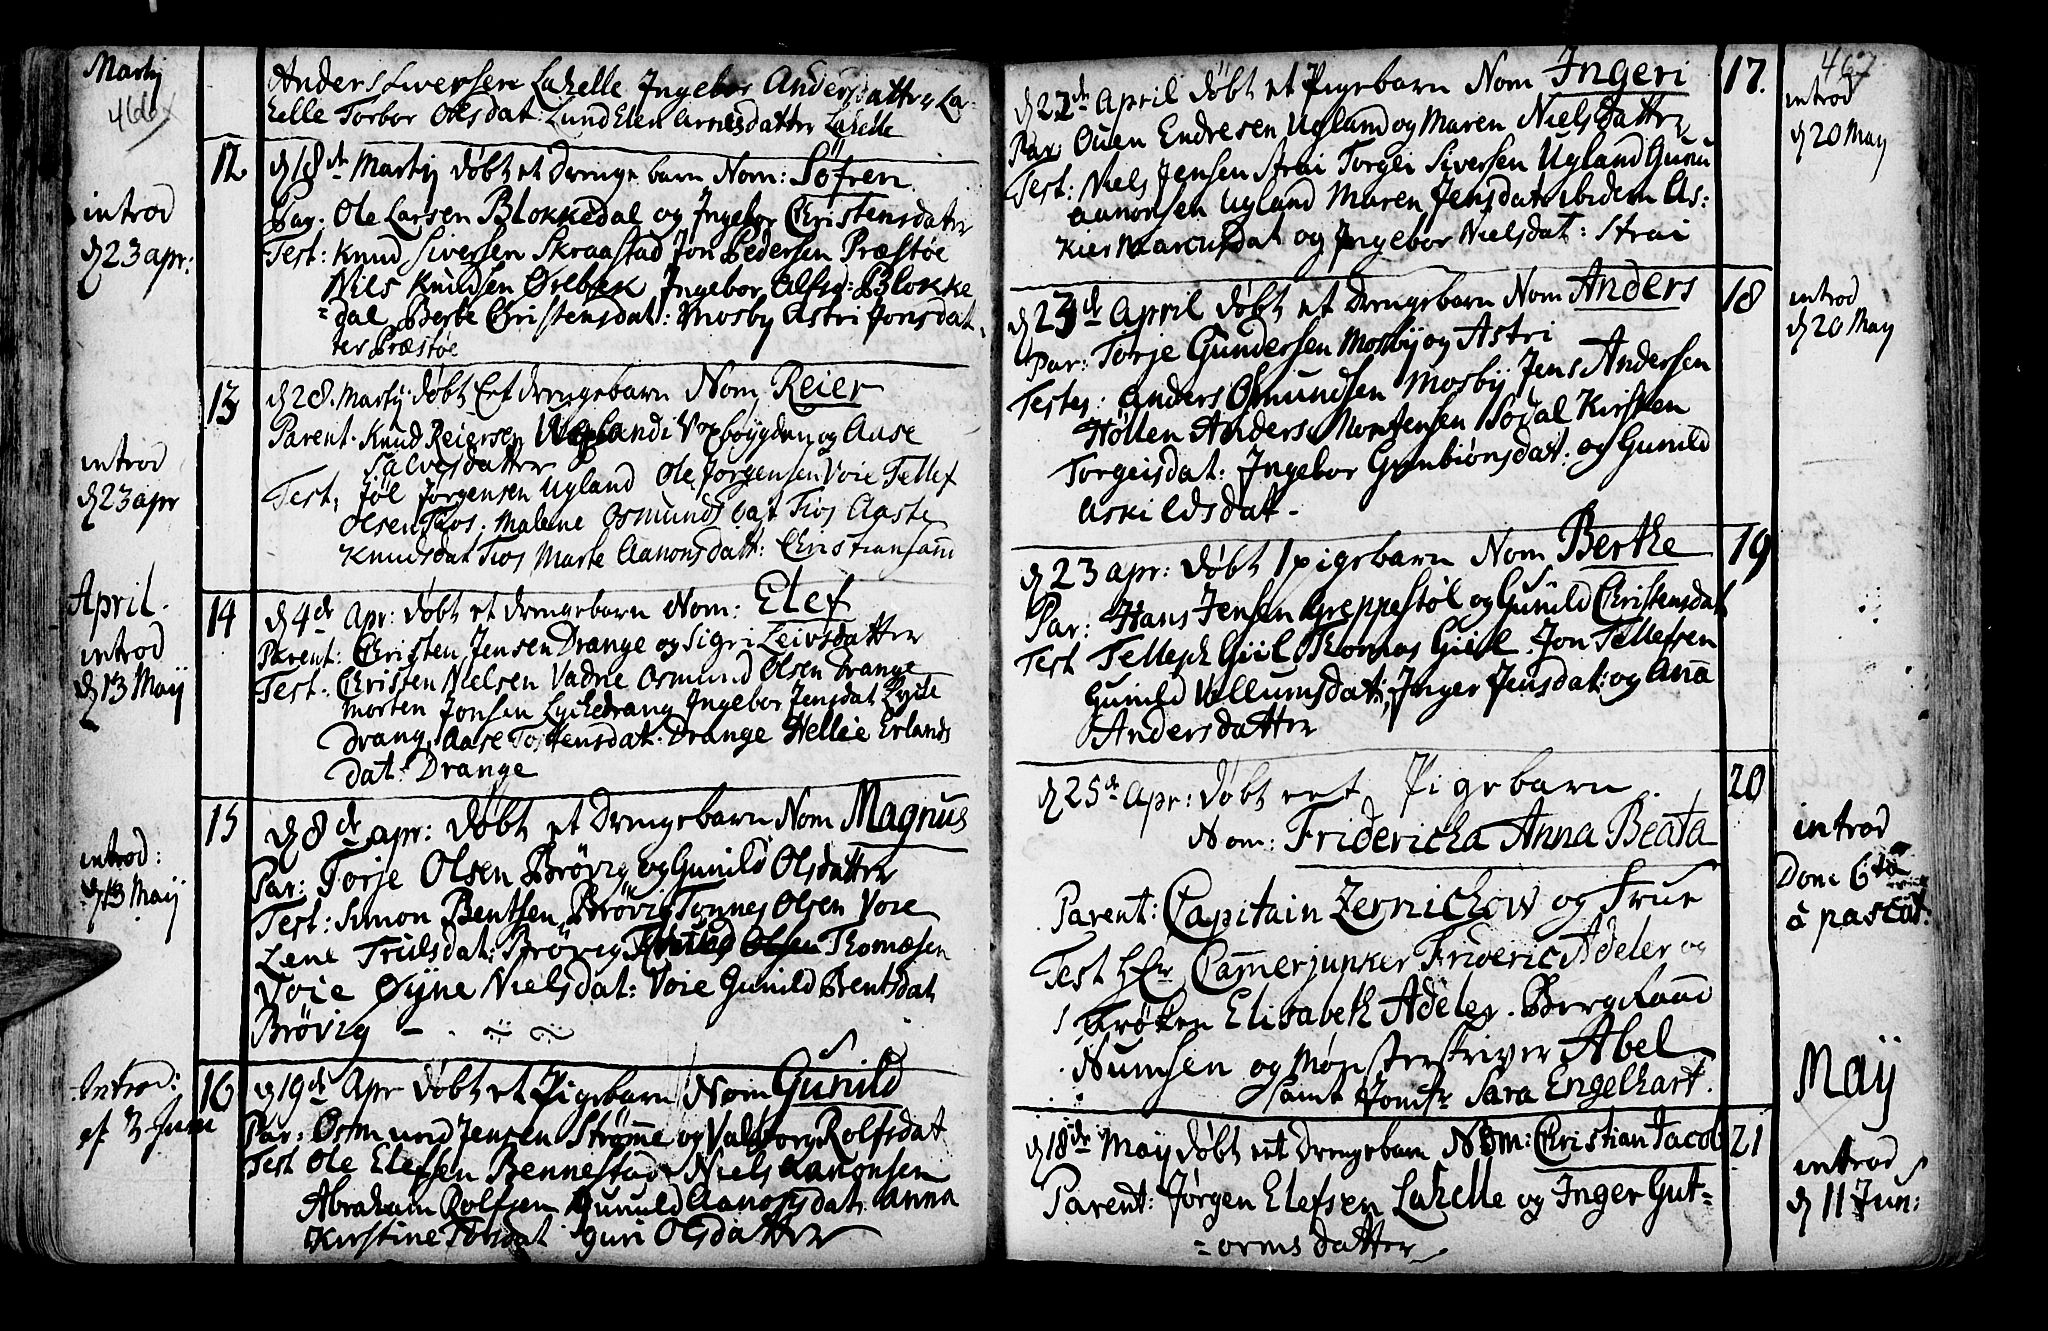 Martij
466
Anders Siversen Lahelle Ingebor Andersdatter La-
helle Torbor Olsdat: Lund Elen Arnesdatter Lahelle
12 d 18de Martij døbt et Drenge barn Nom: Søfren
introd
d 23 apr:
Par: Ole Larsen Blokkedal og Ingebor Christensdatr
Test: Knud Siversen Skraastad Jon Pedersen Præstøe
Niels Knudsen Ørebek Ingebor Olfsd: Blokke
=dal Berte Christensdat: Mosby Astri Jonsdat
ter Præstøe
13 d 28. Martij døbt Eet drengebarn Nom Reier
Parent. Knud Reiersen Ugland i Voxbøygden og Aase
Salvesdatter
introd
d 23 apr
Test: Jol Jørgensen Ugland Ole Jørgensen Voie Tellef
Olsen Tios. Malene Osmunds dat Tios Aaste
Knudsdat Tios Marte Aanonsdatt: Christiansand
April.
14 d 4de Apr: døbt et drengebarn Nom: Elef
introd
d 13 Maij
Parent: Christen Jensen Drange og Sigri Leivsdatter
Test: Christen Nielsen Vadne Osmund Olsen Drange
Morten Jonsen Lyckedrang Ingebor Jensdat Lycke
Drang, Aase Tostensdat: Drange Hellie Erlands
dat: Drange
15 d 8de apr: døbt et Drengebarn Nom Magnus
introd:
d 13 Maij
Par: Torje Olsen Brøvig og Gunild Olsdatter
Test: Simon Bentsen Brøvig Tønnes Olsen Voie
Lene Trulsdat: Brøvig Thomæsen
Voie Øyne Nielsdat: Voie Gunild Brentsdat
Brøvig
16 d 19de Apr døbt et Pigebarn Nom Gunild
Introd:
3 Juni
Par: Osmund Jensen Strømme og Valborg Rolfsdat
Test Ole Elefsen Bennestad Niels Aanonsen
Abraham Rolfsen Gunuld Aanonsdat: Anna
Kirstine Tolsdat guri Olsdatter
467
17. d 22de April døbt et Pigebarn Nom Ingeri
introd
d 20 May
Par Ouen Endresen Ugland og Maren Nielsdatter
Test: Niels Jensen Strai Torgei Siversen Ugland Gunu
Aanonsen Ugland Maren Jensdat ibidem As:
Kier Marcusdat og Ingebor Nielsdat: Strai
18 d 23de April døbt et Drengebarn Nom Anders
introd
d 20 May
Par: Torje Gundersen Mosbij og Astri
Testes: Anders Osmundsen Mosbij Jens Andersen
Høllen Anders Mortensen Sodal Kirsten
Torgeisdat: Ingebor Gunbiønsdat: og Gunild
Askildsdat.
19 d 23 apr: døbt 1 pigebarn Nom Berthe
Par: Hans Jensen Greppestøl og Gunild Christensdat
Test Telleph Giil Thomas Giil. Jon Tellefsen
Gunild Vellumsdat: Inger Jensdat: og Ana
Andersdatter
20 d 25de Apr: døbt eet Pigebarn
Nom: Fridericha Anna Beata
introd
Dom 6ta
à pascat:
Parent: Capitain Zernichow og Frue
Test Hr Camerjunker Frideric Adeler og
Frøken Elisabeth Adeler. Bergraad
Numsen og Mønsterskriver Abel
samt Jomfr Sara Engelhart.
Maij
21 d 18de May døbt eet Drengebarn Nom: Christian Jacob
introd
d 11 Jun:
Parent: Jørgen Elefsen Lahelle og Inger Gut-
=orms datter